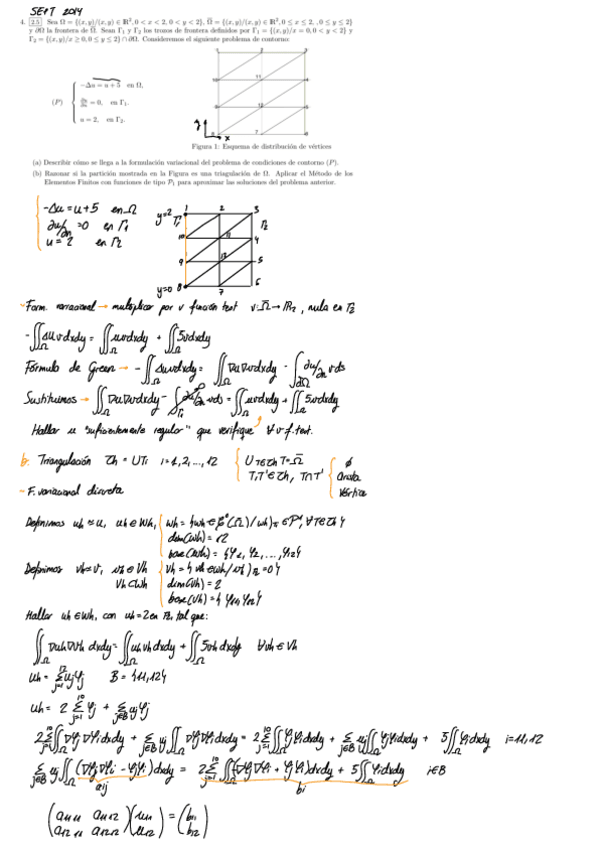 SEPT 2014
4. 2.5 Sea Ω = {(x, y)/(x, y) ∈ ℝ², 0 < x < 2, 0 < y < 2}, Ω̄ = {(x, y)/(x, y) ∈ ℝ², 0 ≤ x ≤ 2, , 0 ≤ y ≤ 2}
y ∂Ω la frontera de Ω̄. Sean Γ₁ y Γ₂ los trozos de frontera definidos por Γ₁ = {(x, y)/x = 0, 0 < y < 2} y
Γ₂ = {(x, y)/x ≥ 0, 0 ≤ y ≤ 2} ∩ ∂Ω. Consideremos el siguiente problema de contorno:
(P) { −Δu = u + 5 en Ω,
∂u/∂n = 0, en Γ₁.
u = 2, en Γ₂.
1 2 3
10 11 4
9 12 5
8 7 6
y x
Figura 1: Esquema de distribución de vértices
(a) Describir cómo se llega a la formulación variacional del problema de condiciones de contorno (P).
(b) Razonar si la partición mostrada en la Figura es una triangulación de Ω. Aplicar el Método de los
Elementos Finitos con funciones de tipo P₁ para aproximar las soluciones del problema anterior.
-Δu = u+5 en Ω
∂u/∂n = 0 en Γ1
u = 2 en Γ2
y=2 1 2 3
Γ1 Γ2
10 11 4
9 12 5
y=0 8 7 6
- Form. variacional → multiplicar por v función test v: Ω̄ → IR, nula en Γ2
-∬Ω Δu v dxdy = ∬Ω uv dxdy + ∬Ω 5v dxdy
Fórmula de Green → -∬Ω Δu v dxdy = ∬Ω ∇u ∇v dxdy - ∫∂Ω ∂u/∂n v ds
Sustituimos → ∬Ω ∇u ∇v dxdy - ∫Γ1 ∂u/∂n v ds = ∬Ω uv dxdy + ∬Ω 5v dxdy
Hallar u "suficientemente regular" que verifique ∀ v f. test.
b. Triangulación Ʈh = UTi i = 1, 2, ..., 12 { U T∈Ʈh T = Ω̄
T, T' ∈ Ʈh, T∩T' { ∅
Arista
Vértice
- F. variacional discreta
Definimos uh ≈ u, uh ∈ Wh, { Wh = {wh ∈ ℓ⁰(Ω̄) / wh)T ∈ P¹, ∀T∈Ʈh}
dim(Wh) = 12
base(Wh) = {φ1, φ2, ..., φ12}
Definimos vh ≈ v, vh ∈ Vh { Vh = {vh ∈ Wh / vh)Γ2 = 0}
Vh ⊂ Wh dim(Vh) = 2
base(Vh) = {φ11, φ12}
Hallar uh ∈ Wh, con uh = 2 en Γ2, tal que:
∬Ω ∇uh ∇vh dxdy = ∬Ω uh vh dxdy + ∬Ω 5vh dxdy ∀vh ∈ Vh
uh = Σ¹²j=1 uj φj B = {11, 12}
uh = 2 Σ¹⁰j=1 φj + Σj∈B uj φj
2Σ¹⁰j=1 ∬Ω ∇φj ∇φi dxdy + Σj∈B uj ∬Ω ∇φj ∇φi dxdy = 2Σ¹⁰j=1 ∬Ω φj φi dxdy + Σj∈B uj ∬Ω φj φi dxdy + 5∬Ω φi dxdy i = 11, 12
Σj∈B uj ∬Ω (∇φj ∇φi - φj φi) dxdy = 2Σ¹⁰j=1 ∬Ω (-∇φj ∇φi + φj φi) dxdy + 5∬Ω φi dxdy i∈B
aij bi
(a11 11 a11 12 a12 11 a12 12) (u11 u12) = (b11 b12)